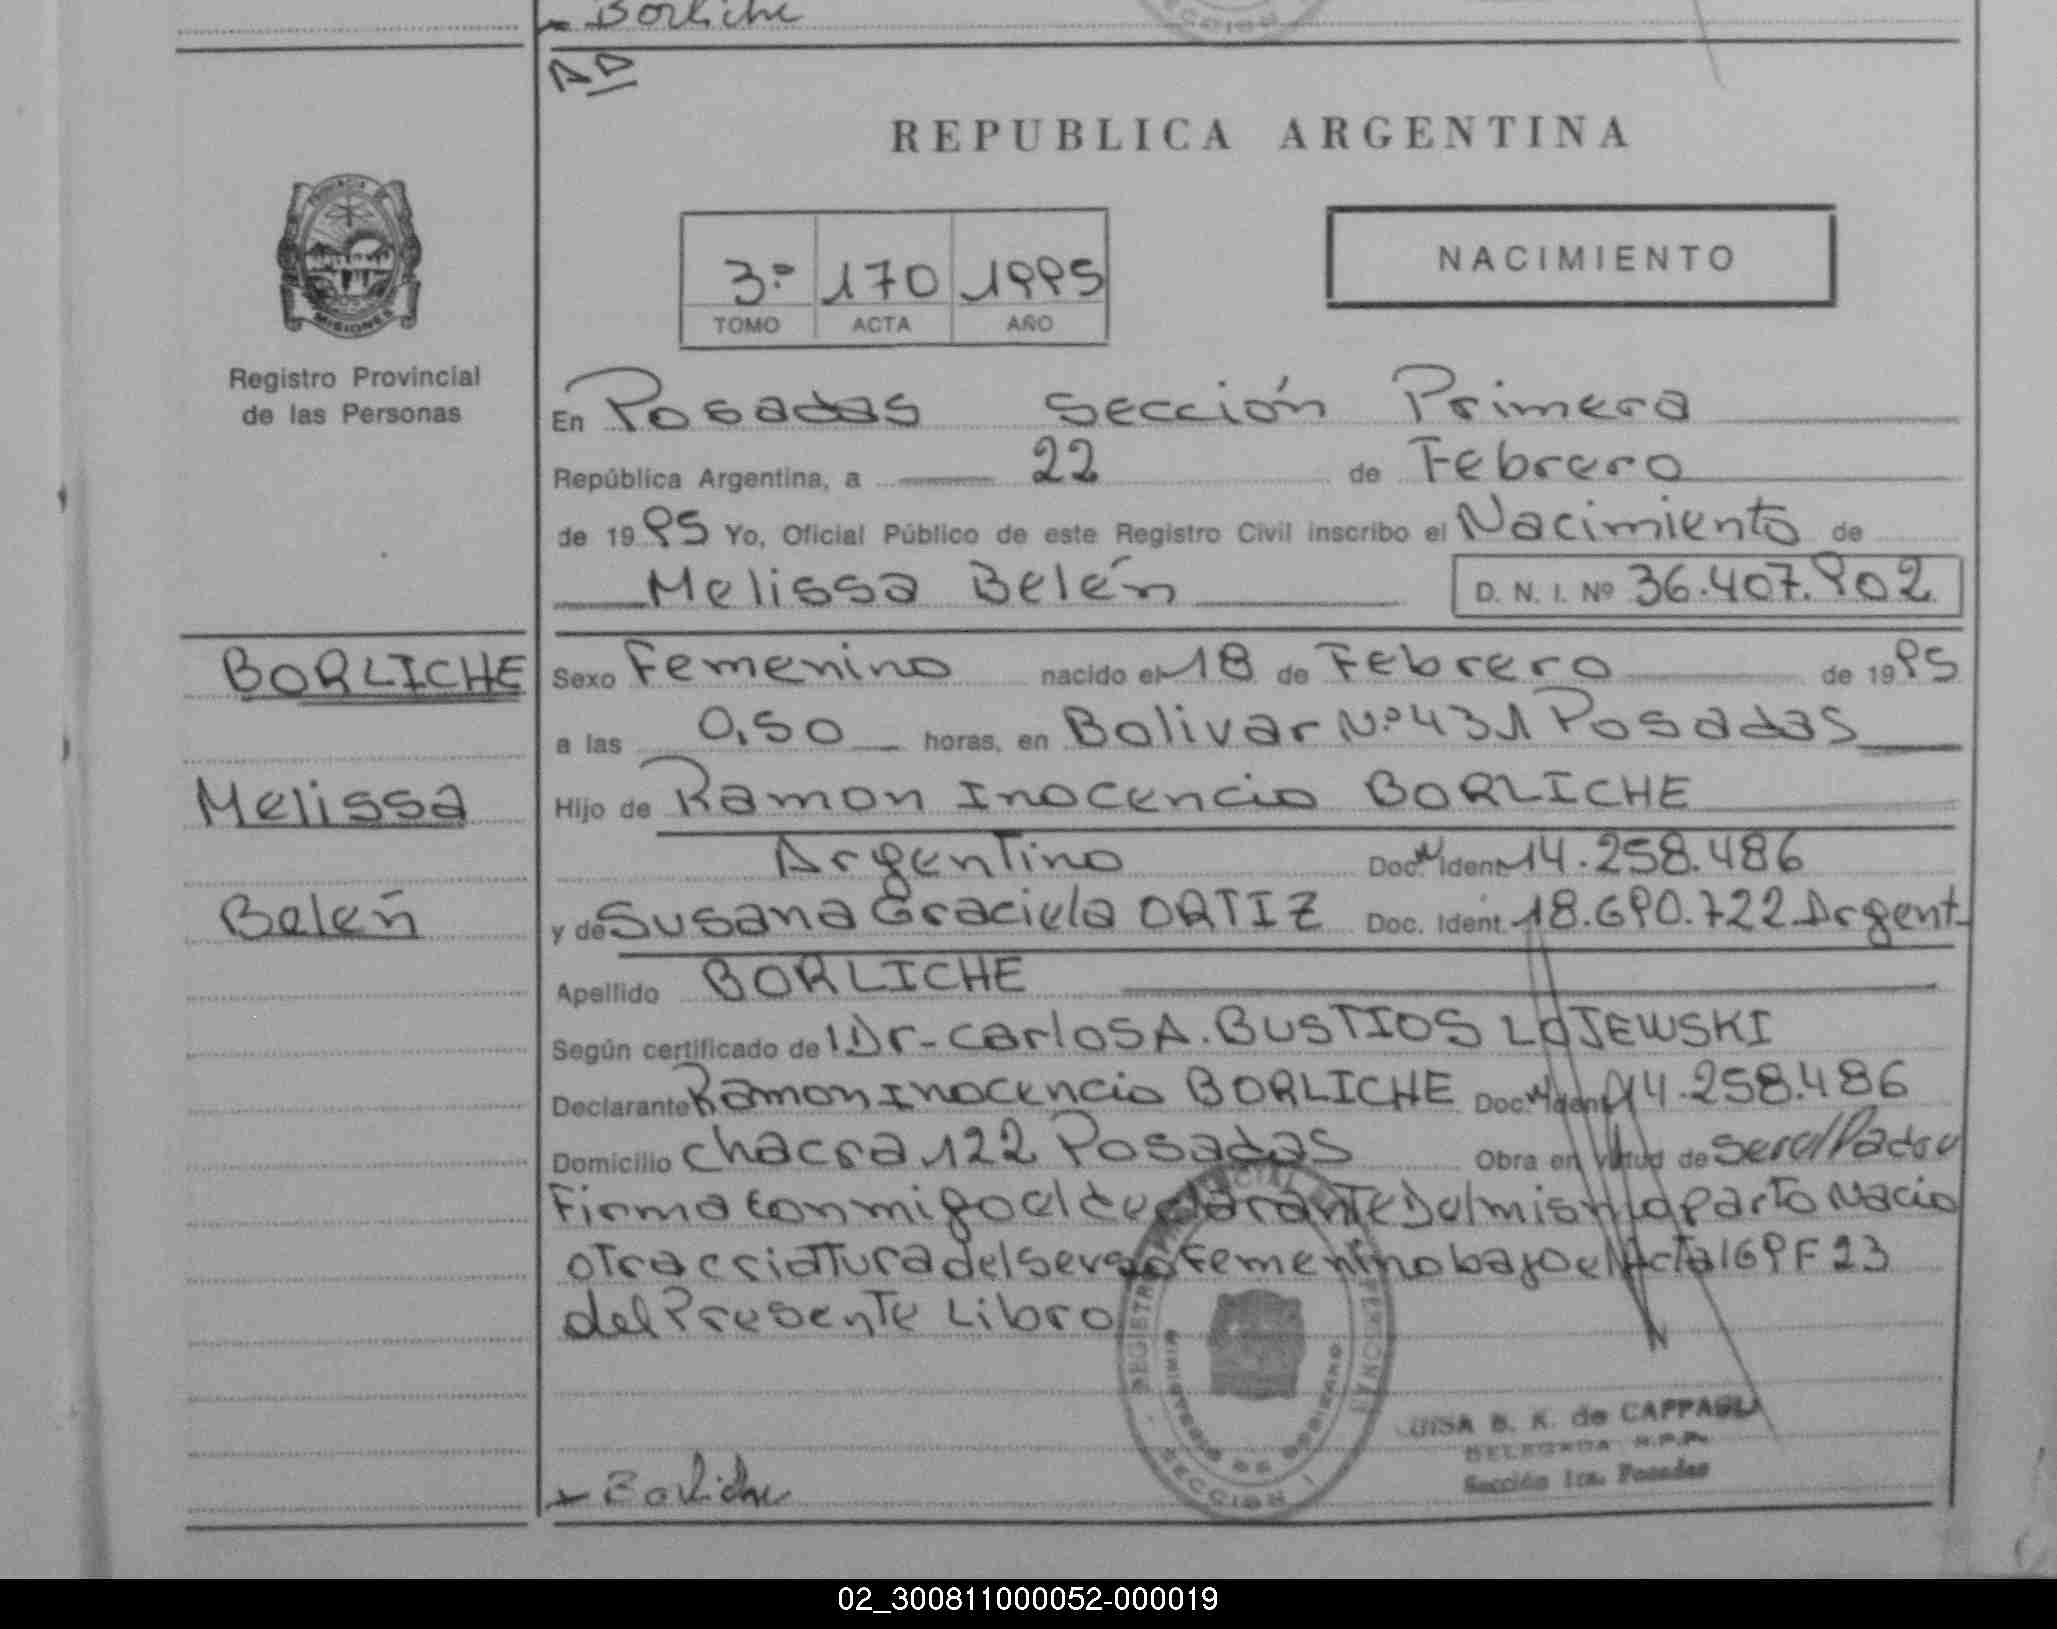 Borliche
AD
REPUBLICA ARGENTINA
PROVINCIA
MISIONES
3º 170 1995
TOMO ACTA AÑO
NACIMIENTO
Registro Provincial
de las Personas
En Posadas Sección Primera
República Argentina, a 22 de Febrero
de 1995 Yo, Oficial Público de este Registro Civil inscribo el Nacimiento de
Melissa Belén D. N. I. Nº 36.407.902
BORLICHE
Melissa
Belén
Sexo Femenino nacido el 18 de Febrero de 1995
a las 0,50 horas, en Bolivar Nº 431 Posadas
Hijo de Ramon Inocencio BORLICHE
Argentino Doc. N Ident. 14.258.486
y de Susana Graciela ORTIZ Doc. Ident. 18.690.722 Argent.
Apellido BORLICHE
Según certificado del Dr. Carlos A. BUSTIOS LOJEWSKI
Declarante Ramon Inocencio BORLICHE Doc. N Ident. 14.258.486
Domicilio Chacra 122 Posadas Obra en virtud de ser el Padre
Firma conmigo el declarante Del mismo parto Nacio
otra criattura del sexo Femenino bajo el Acta 169 F 23
del Presente Libro
SECCION 1
MINISTERIO DE GOBIERNO
LUISA B. K. de CAPPAGLI
DELEGADA R.P.P.
Sección 1ra. Posadas
Borliche
02_300811000052-000019